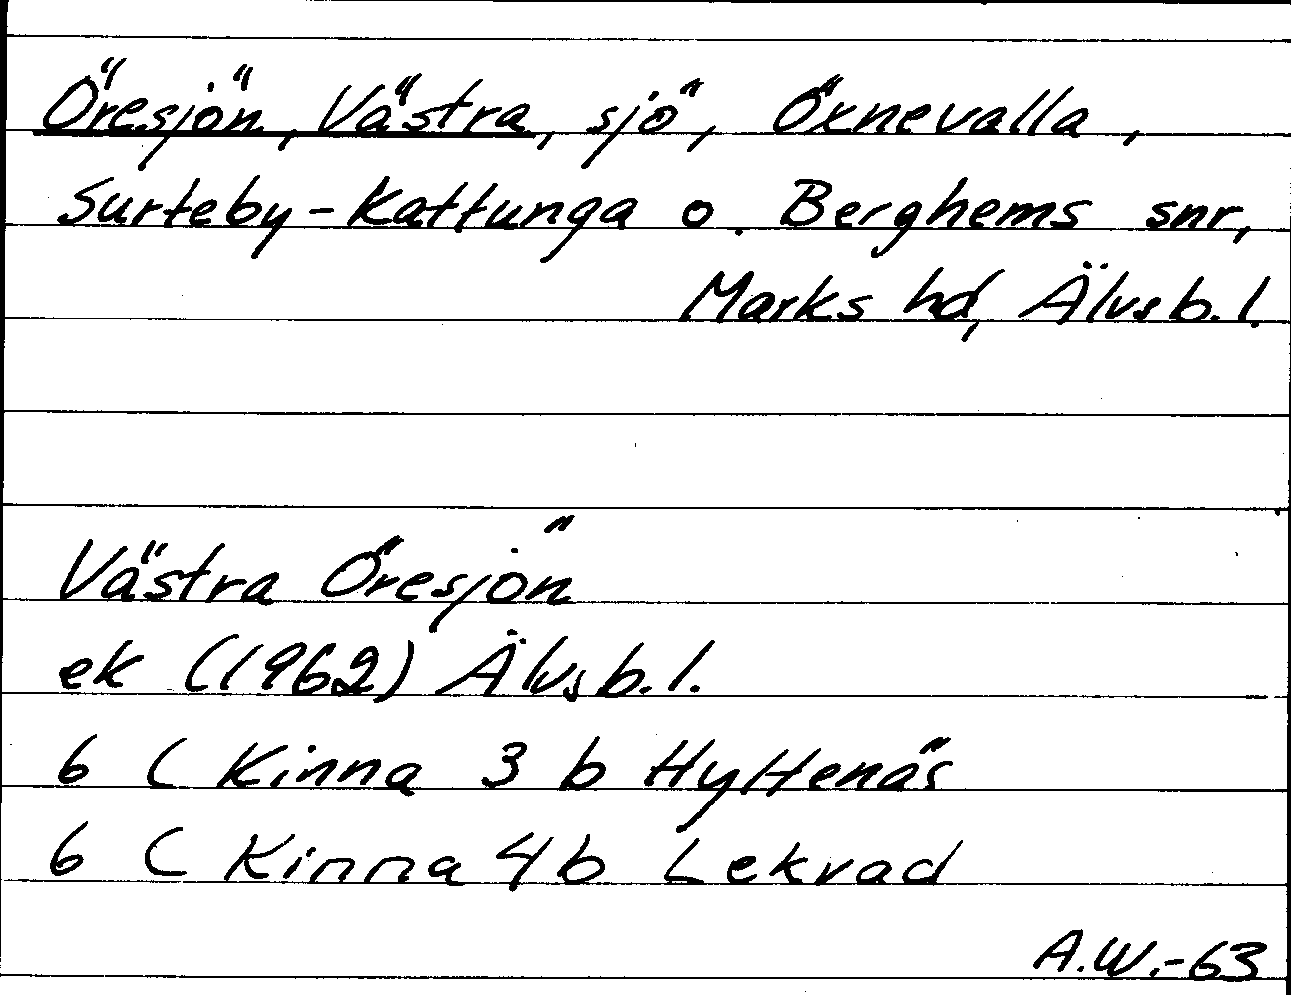 Öresjön, Västra, sjö, Öxnevalla,
Surteby-Kattunga o. Berghems snr,
Marks hd, Älvsb. l.
Västra Öresjön
ek (1962) Älvsb. l.
6 C Kinna 3 b Hyltenäs
6 C Kinna 4 b Lekvad
A.W.-63